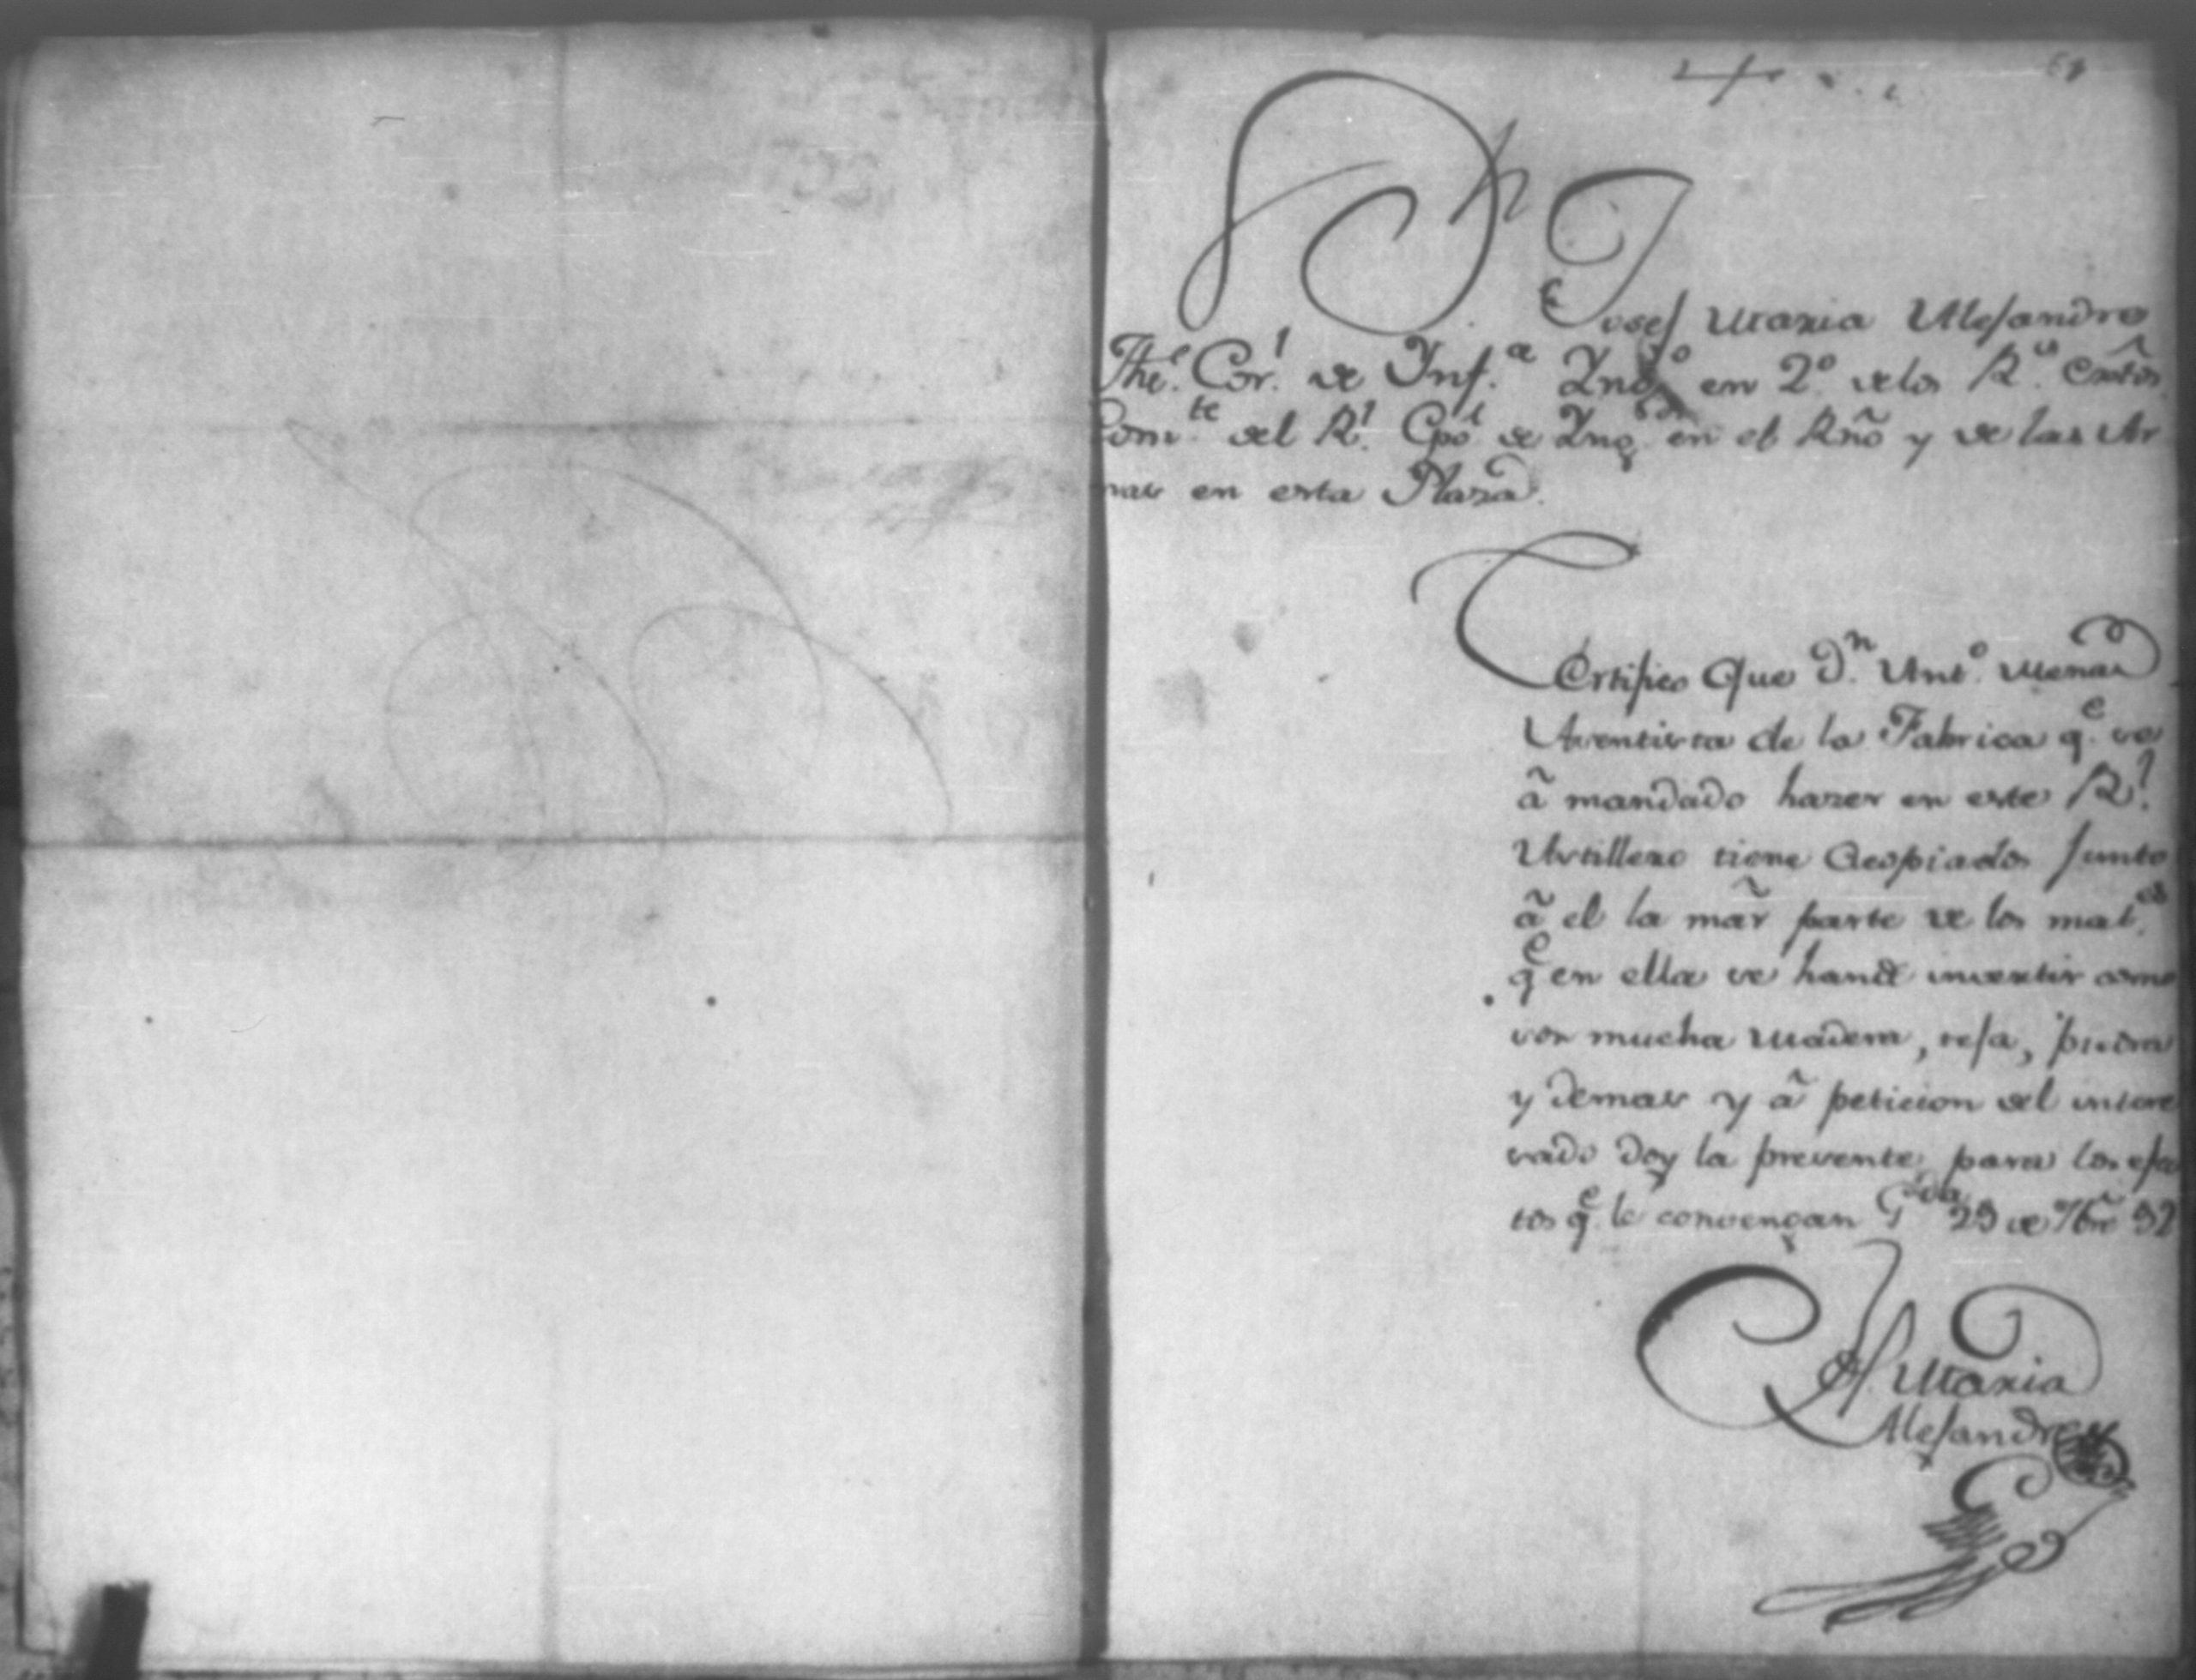 Dn Josef Maria Alejandro
The. Corl. de Ynfa. Yngo en 2o. delos Rs. Extos.
Comte. del Rl. Cpo de Yngs en el Rño y de las Ar
mas en esta Plaza.
Certifico Que Dn. Anto. Menas
Asentista de la Fabrica qe. se
â mandado hazer en este Rl.
Astillero tiene acopiados junto
â el la mār parte de los mates.
qe en ella se hande invertir como
son mucha madera, teja, piedra
y demas y â peticion del intere
sado doy la presente para los efec
tos qe. le convengan 29 de 92
Josf Maria
Alejandro